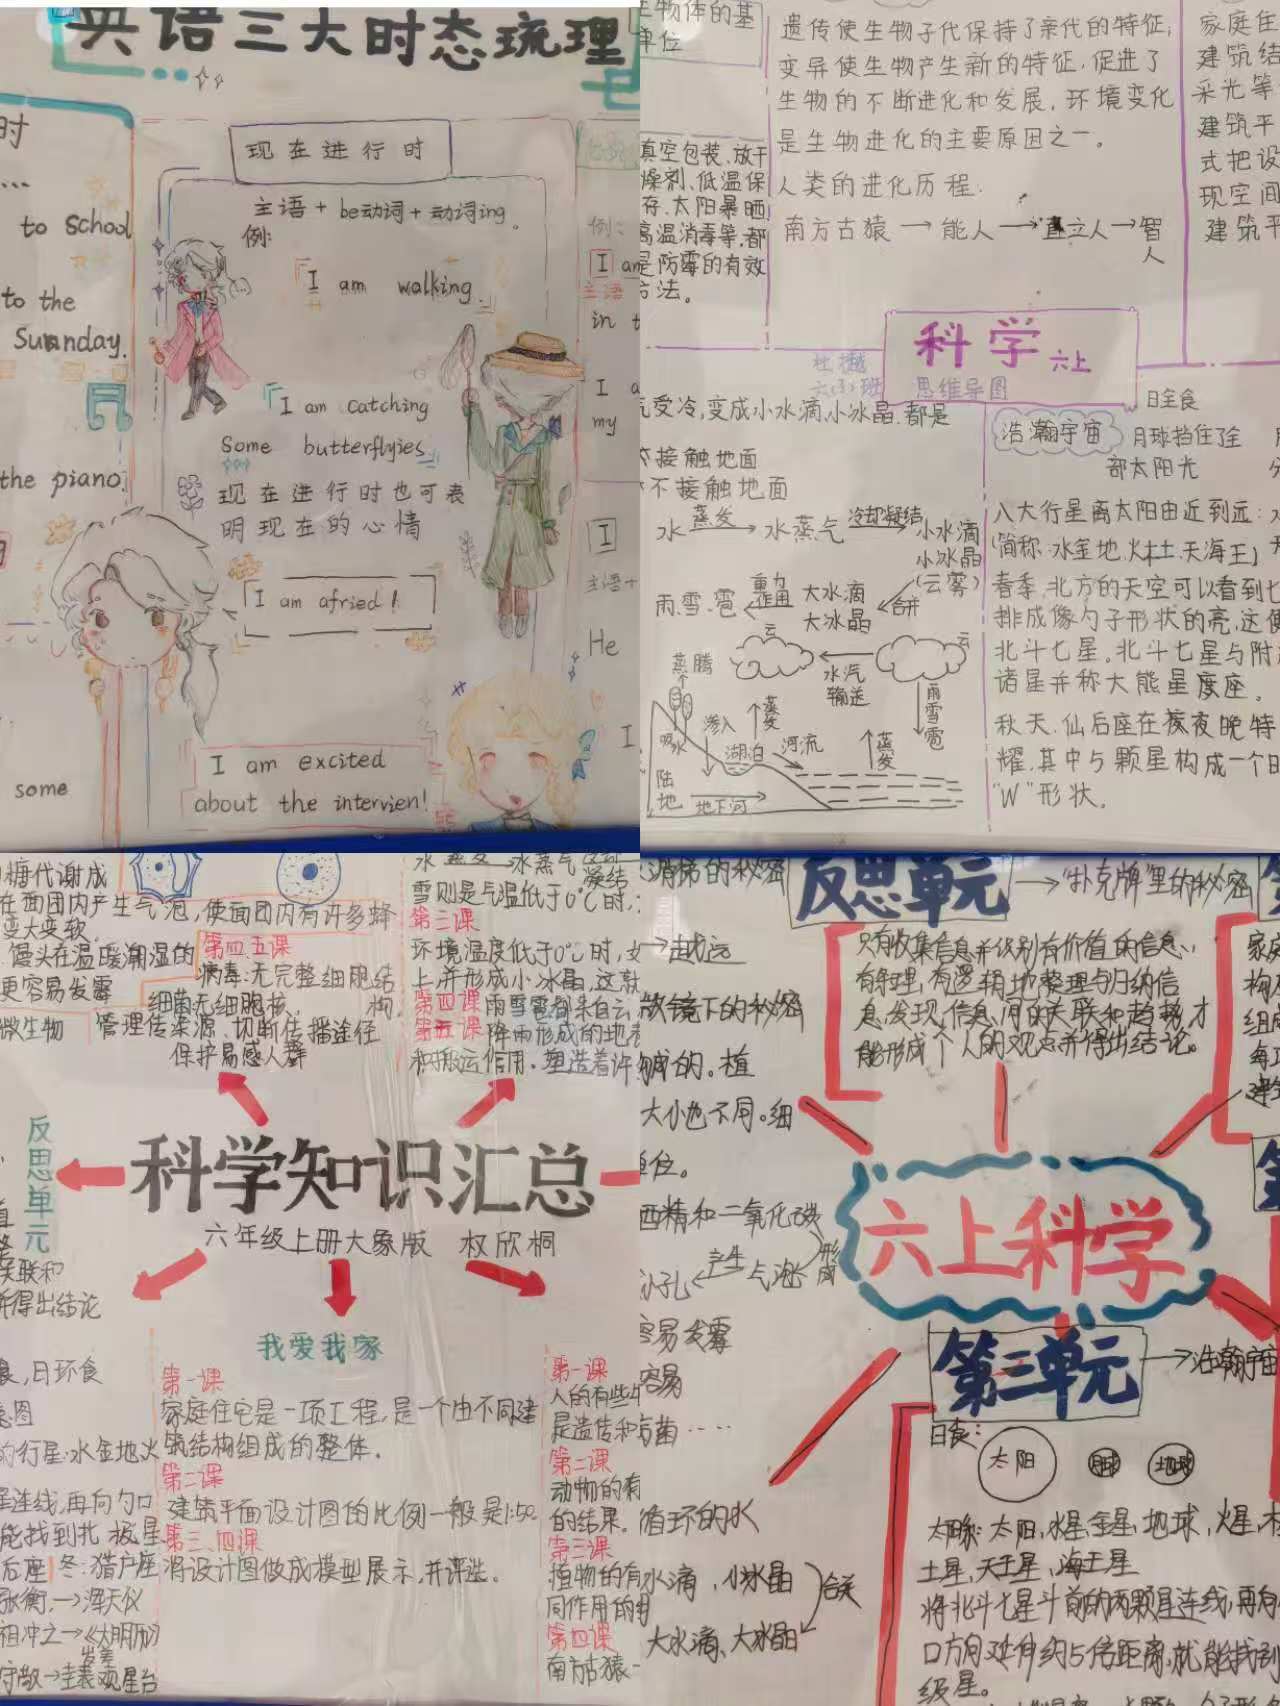 英语三大时态琉理
时
现在进行时
主语+be动词+动词ing。
例:
to school
I am walking.
to the
Suanday.
I am catching
some butterflyies
the piano.
现在进行时也可表
明现在的心情
I am afried!
I am excited
some
about the intervien!
例:
I am
主语
in t
I a
my
I
主语+
He
I
生物体的基
单位
遗传使生物子代保持了亲代的特征;
变异使生物产生新的特征,促进了
生物的不断进化和发展,环境变化
是生物进化的主要原因之一。
人类的进化历程.
南方古猿→能人→直立人→智人
真空包装、放干
燥剂、低温保
存、太阳暴晒
高温消毒等,都
是防霉的有效
方法。
家庭住
建筑结
采光等
建筑平
式把设
现空间
建筑平
科学六上
思维导图
气受冷,变成小水滴,小冰晶.都是
接触地面
不接触地面
水 蒸发→ 水蒸气 冷却凝结→ 小水滴
小冰晶
(云雾)
合并
大水滴
大冰晶
重力作用
雨.雪.雹
云
云
水汽
输送
蒸腾
吸水
渗入
湖泊
蒸发
河流
蒸发
雨雪雹
陆地
地下河
日全食
浩瀚宇宙
月球挡住了全
部太阳光
八大行星离太阳由近到远:
(简称:水金地.火木土.天海王)
春季,北方的天空可以看到七
排成像勺子形状的亮,这便
北斗七星。北斗七星与附近
诸星并称大熊星座。
秋天.仙后座在夜晚特
耀.其中5颗星构成一个
"W"形状。
糖代谢成
在面团内产生气泡,使面团内有许多蜂
变大变软.
馒头在温暖潮湿的
更容易发霉
微生物
第四.五课
病毒:无完整细胞结构.
细菌无细胞核、
管理传染源、切断传播途径
保护易感人群
水 蒸发 水蒸气 凝结
雪则是气温低于0℃时,
第三课
环境温度低于0℃时,
上,并形成小冰晶,这就
第四课 雨雪雹都来自云
第五课 降雨形成的地表
和搬运作用.塑造着许
反思单元
关联和
得出结论
科学知识汇总
六年级上册大象版 权欣桐
我爱我家
第一课
家庭住宅是一项工程,是一个由不同建
筑结构组成的整体.
第二课
建筑平面设计图的比例一般是1:50
第三、四课
将设计图做成模型展示,并评选.
日环食
意图
的行星:水金地火
连线,再向勺口
能找到北极星
后座 冬:猎户座
张衡→浑天仪
祖冲之→《大明历》
守敬→圭表 观星台
第一课
人的有些
是遗传和
第二课
动物的有
的结果。
第三课
植物的有
同作用的
第四课
南方古猿
消梯的秘密
反思单元→扑克牌里的秘密
只有收集信息并识别有价值的信息、
有条理、有逻辑地整理与归纳信
息,发现信息间的关联和趋势,才
能形成个人的观点并得出结论。
放镜下的秘密
的。植
大小也不同。细
单位。
酒精和二氧化碳
形成
小孔 产生 气泡
容易发霉
容易
菌……
循环的水
水滴、小冰晶
合并
大水滴、大冰晶
六上科学
第三单元→浩瀚宇宙
日食:
太阳
月球
地球
太阳系:太阳,水星,金星,地球,火星,木
土星,天王星,海王星
将北斗七星斗前的两颗星连线,再向
口方向延伸约5倍距离,就能找到
级星。